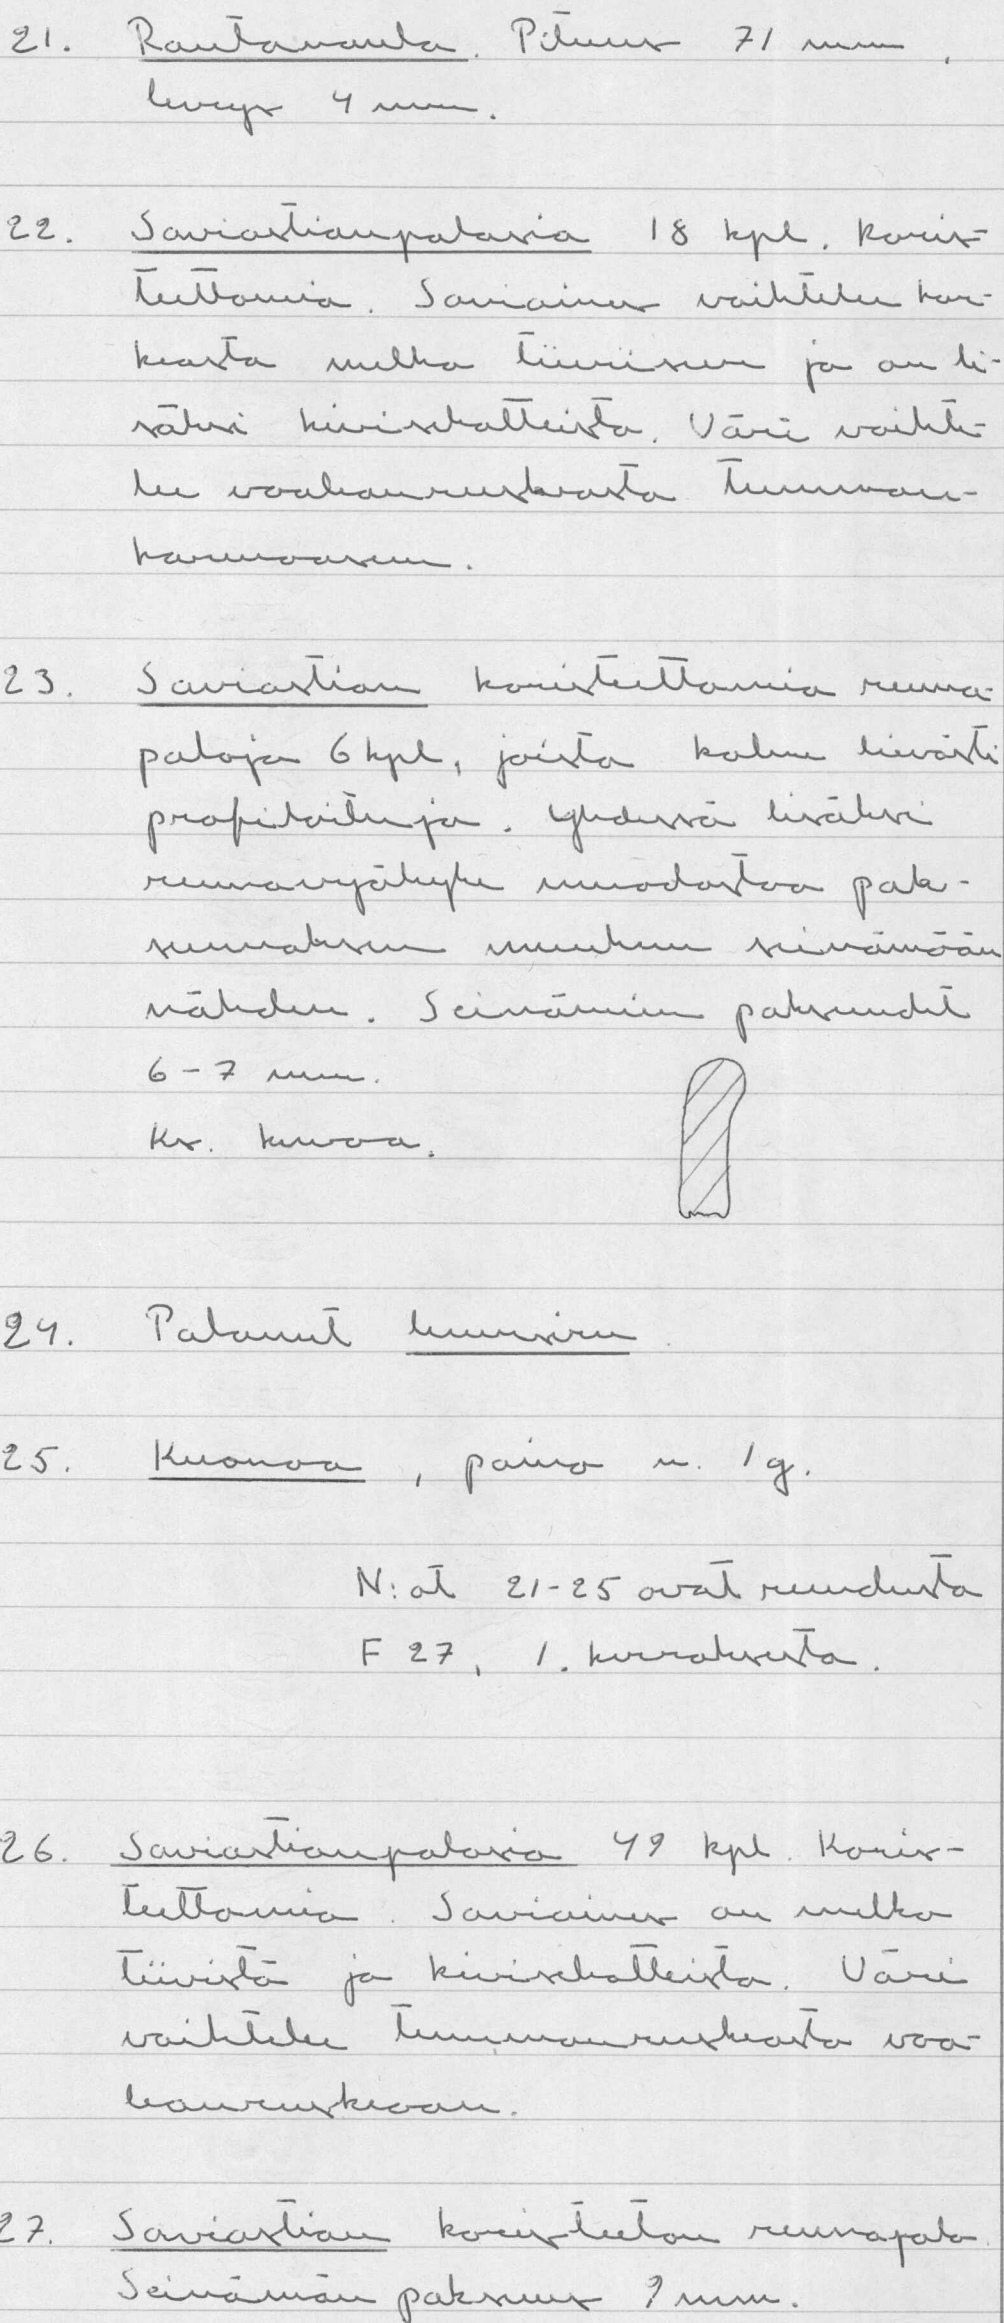 21. Rautanaula. Pituus 71 mm,
leveys 4 mm.
22. Saviastianpalasia 18 kpl. Koris-
teettomia. Saviaines vaihtelee kar-
keasta melko tiiviiseen ja on li-
säksi kivisekoitteista. Väri vaihte-
lee vaaleanruskeasta tumman-
harmaaseen.
23. Saviastian koristeettomia reuna-
paloja 6 kpl, joista kolme lievästi
profiloituja. Yhdessä lisäksi
reunavyöhyke muodostaa pak-
sunnoksen muuhun seinämään
nähden. Seinämien paksuudet
6-7 mm.
Ks. kuvaa.
24. Palanut luunsiru
25. Kuonaa, paino n. 1 g.
N:ot 21-25 ovat ruudusta
F 27, 1. kerroksesta.
26. Saviastianpalasia 49 kpl. Koris-
teettomia. Saviaines on melko
tiivistä ja kivisekoitteista. Väri
vaihtelee tummanruskeasta vaa-
leanruskeaan.
27. Saviastian koristeeton reunapala
Seinämän paksuus 9 mm.